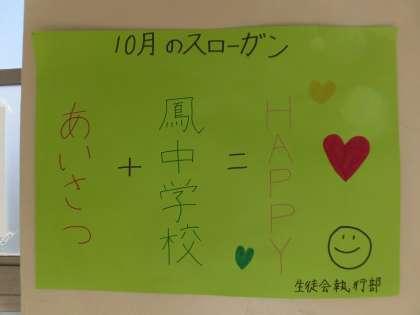 10月のスローガン
あいさつ
+
鳳中学校
=
HAPPY
生徒会執行部